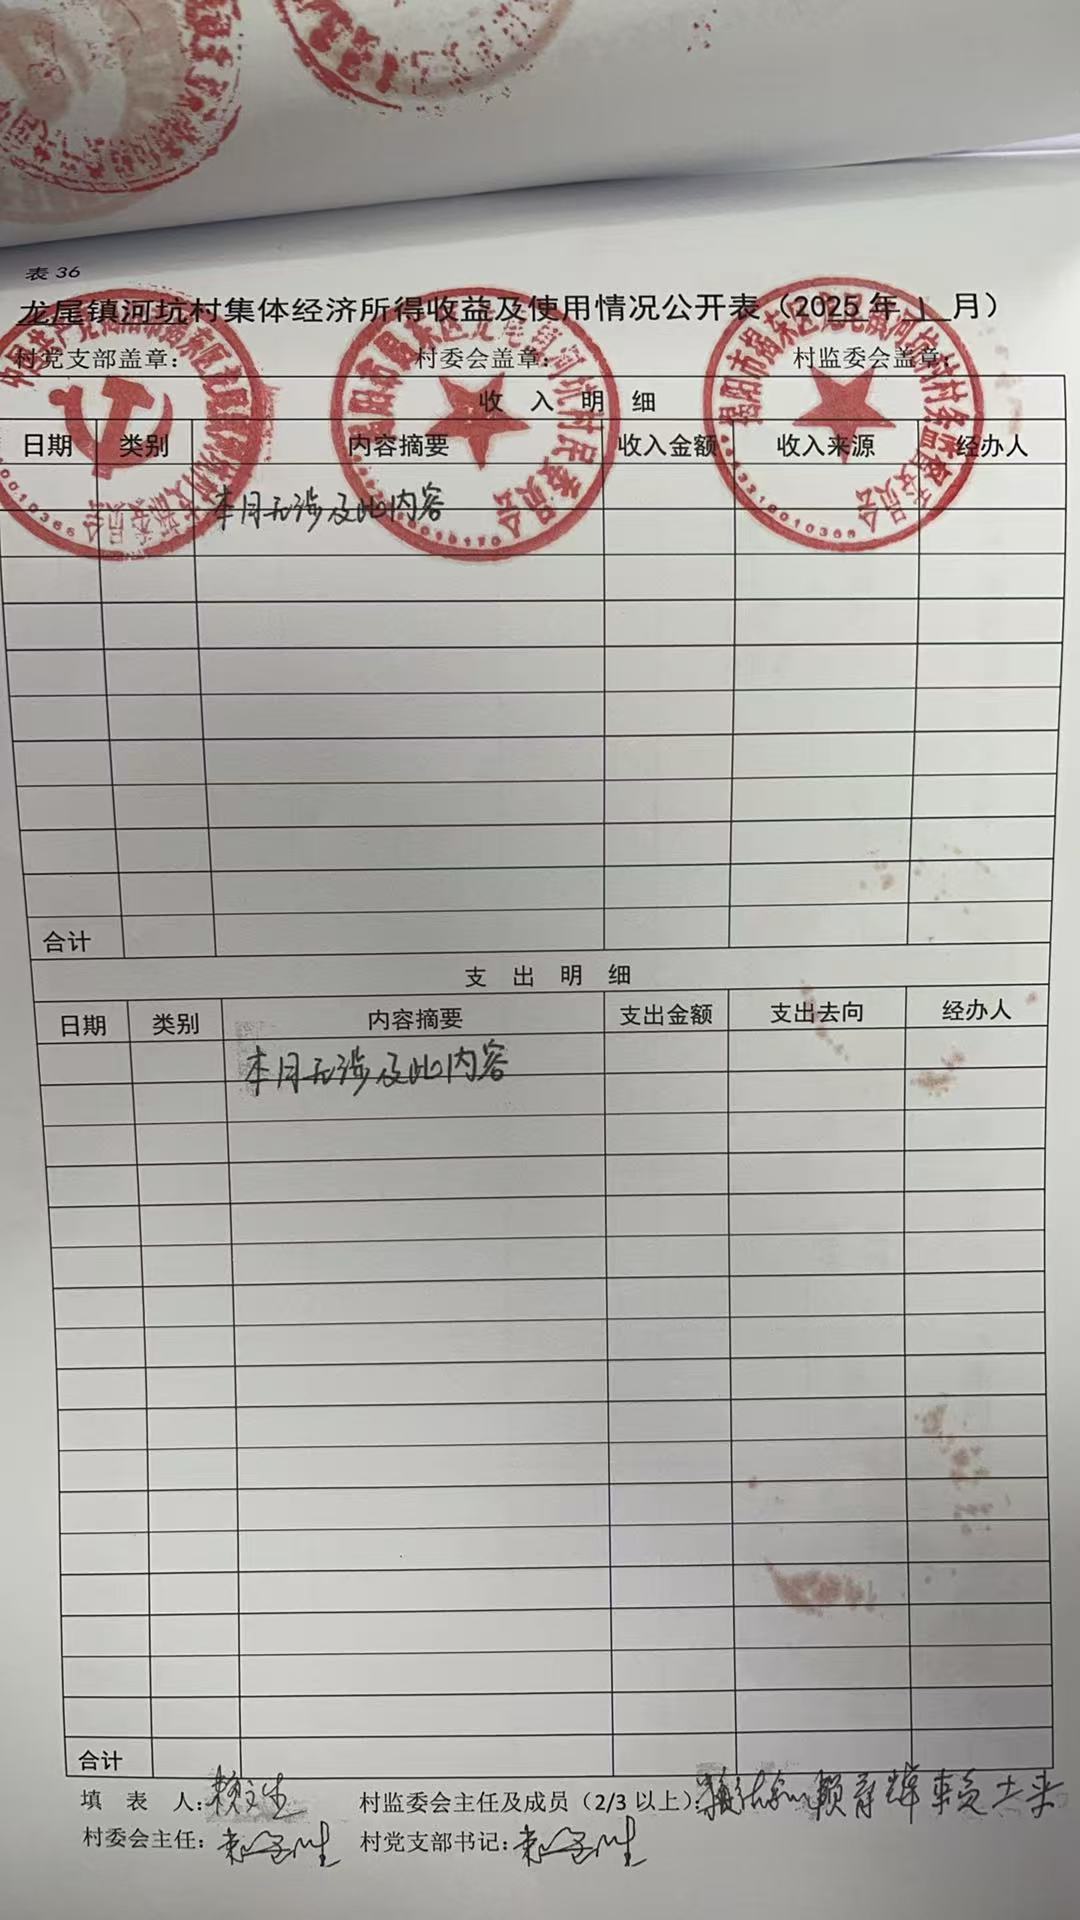 表 36
龙尾镇河坑村集体经济所得收益及使用情况公开表（2025 年 1 月）
村党支部盖章： 村委会盖章： 村监委会盖章：
收 入 明 细
日期 类别 内容摘要 收入金额 收入来源 经办人
本月无涉及此内容
合计
支 出 明 细
日期 类别 内容摘要 支出金额 支出去向 经办人
本月无涉及此内容
合计
填 表 人： 赖文生 村监委会主任及成员（2/3 以上）：
村委会主任： 村党支部书记：